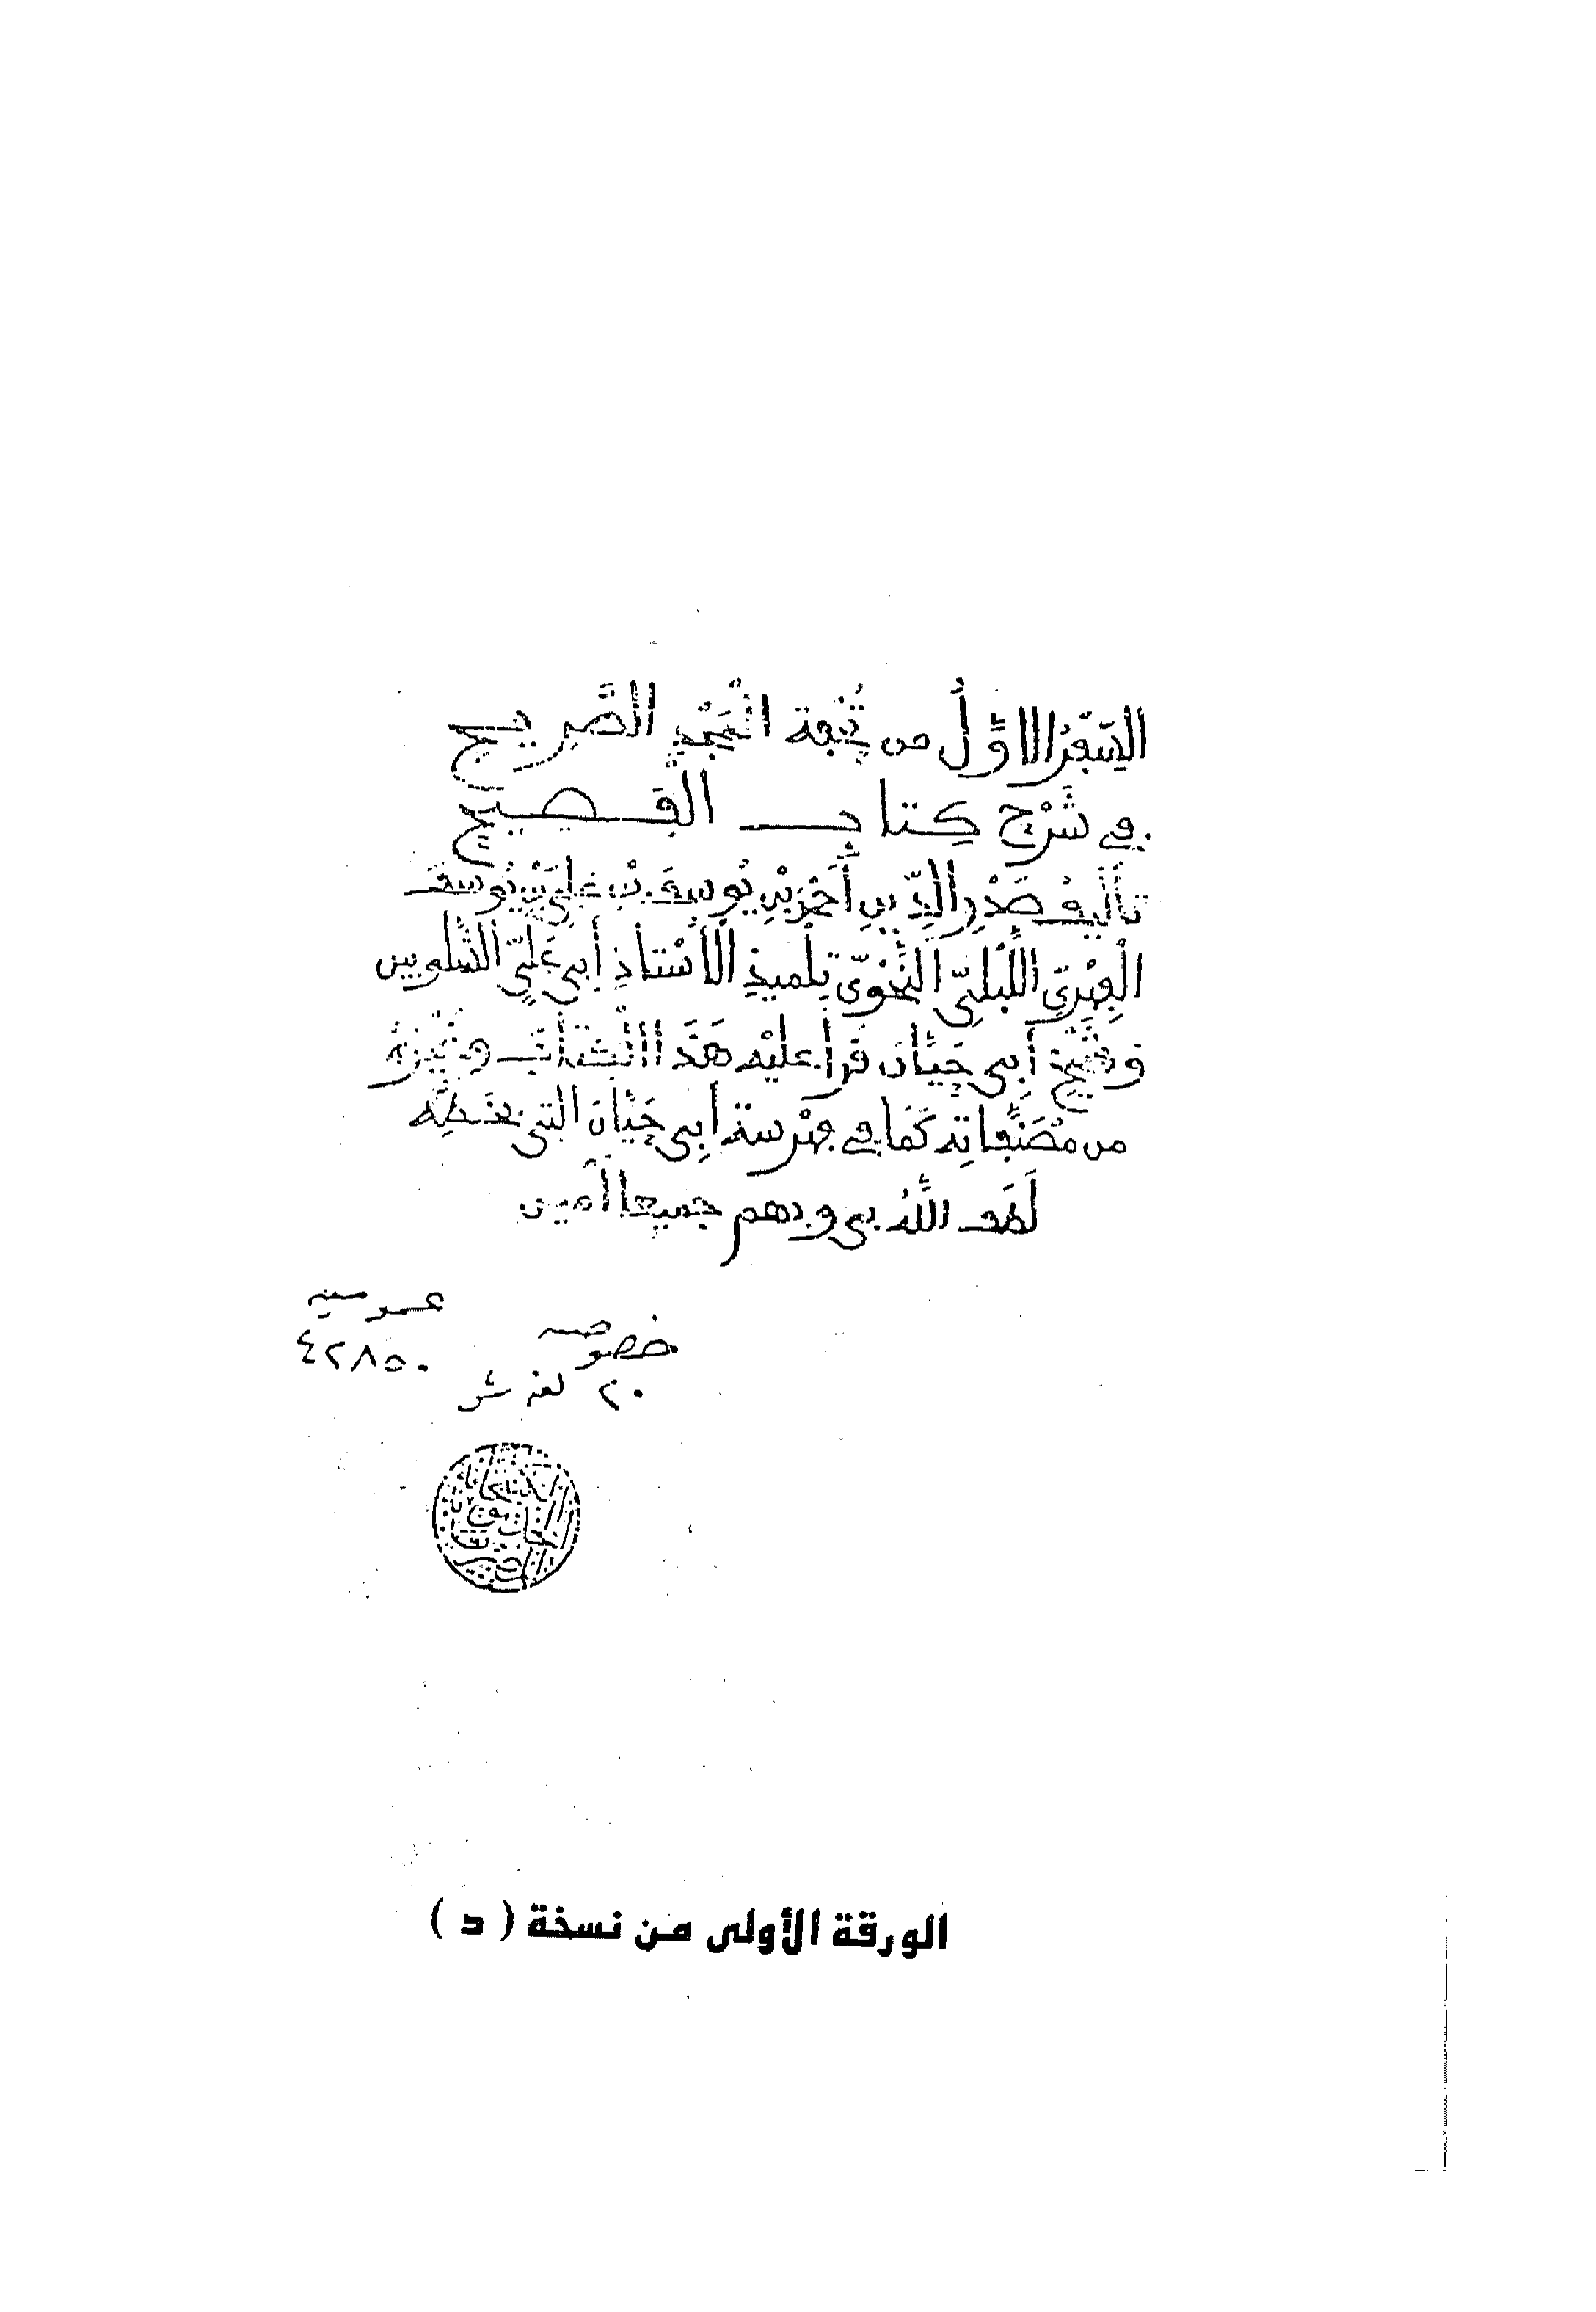 السِّفْرُ الاوّلُ من تُحْفة المَجْدِ الصَّرِيح
في شَرْح كِتاب الفَصِيح
تأليف صَدْرِ الدِّين أحْمَد بْن يُوسف بن عَلِيّ بْن يُوسف
الْفِهْرِيّ اللَّبْلِيّ النَّحْوِيّ تِلْميذِ الأسْتاذِ أبي عَلِيّ الشَّلَوبين
وشَيْخ أبِي حَيَّان قرأ عليْه هَذَا الْكِتَابَ وغَيْرَهُ
من مُصَنَّفاتِه كَمَا في فِهْرسة أبِي حَيَّان التي بخَطِّه
لَطَف اللَّهُ بي وبهم جميعا أمين
عموميه
٤٢٨٥٠
خصوصيه
٢٠ لغه ش
الكتبخانة
الخديوية
المصرية
الورقة الأولى من نسخة ( د )